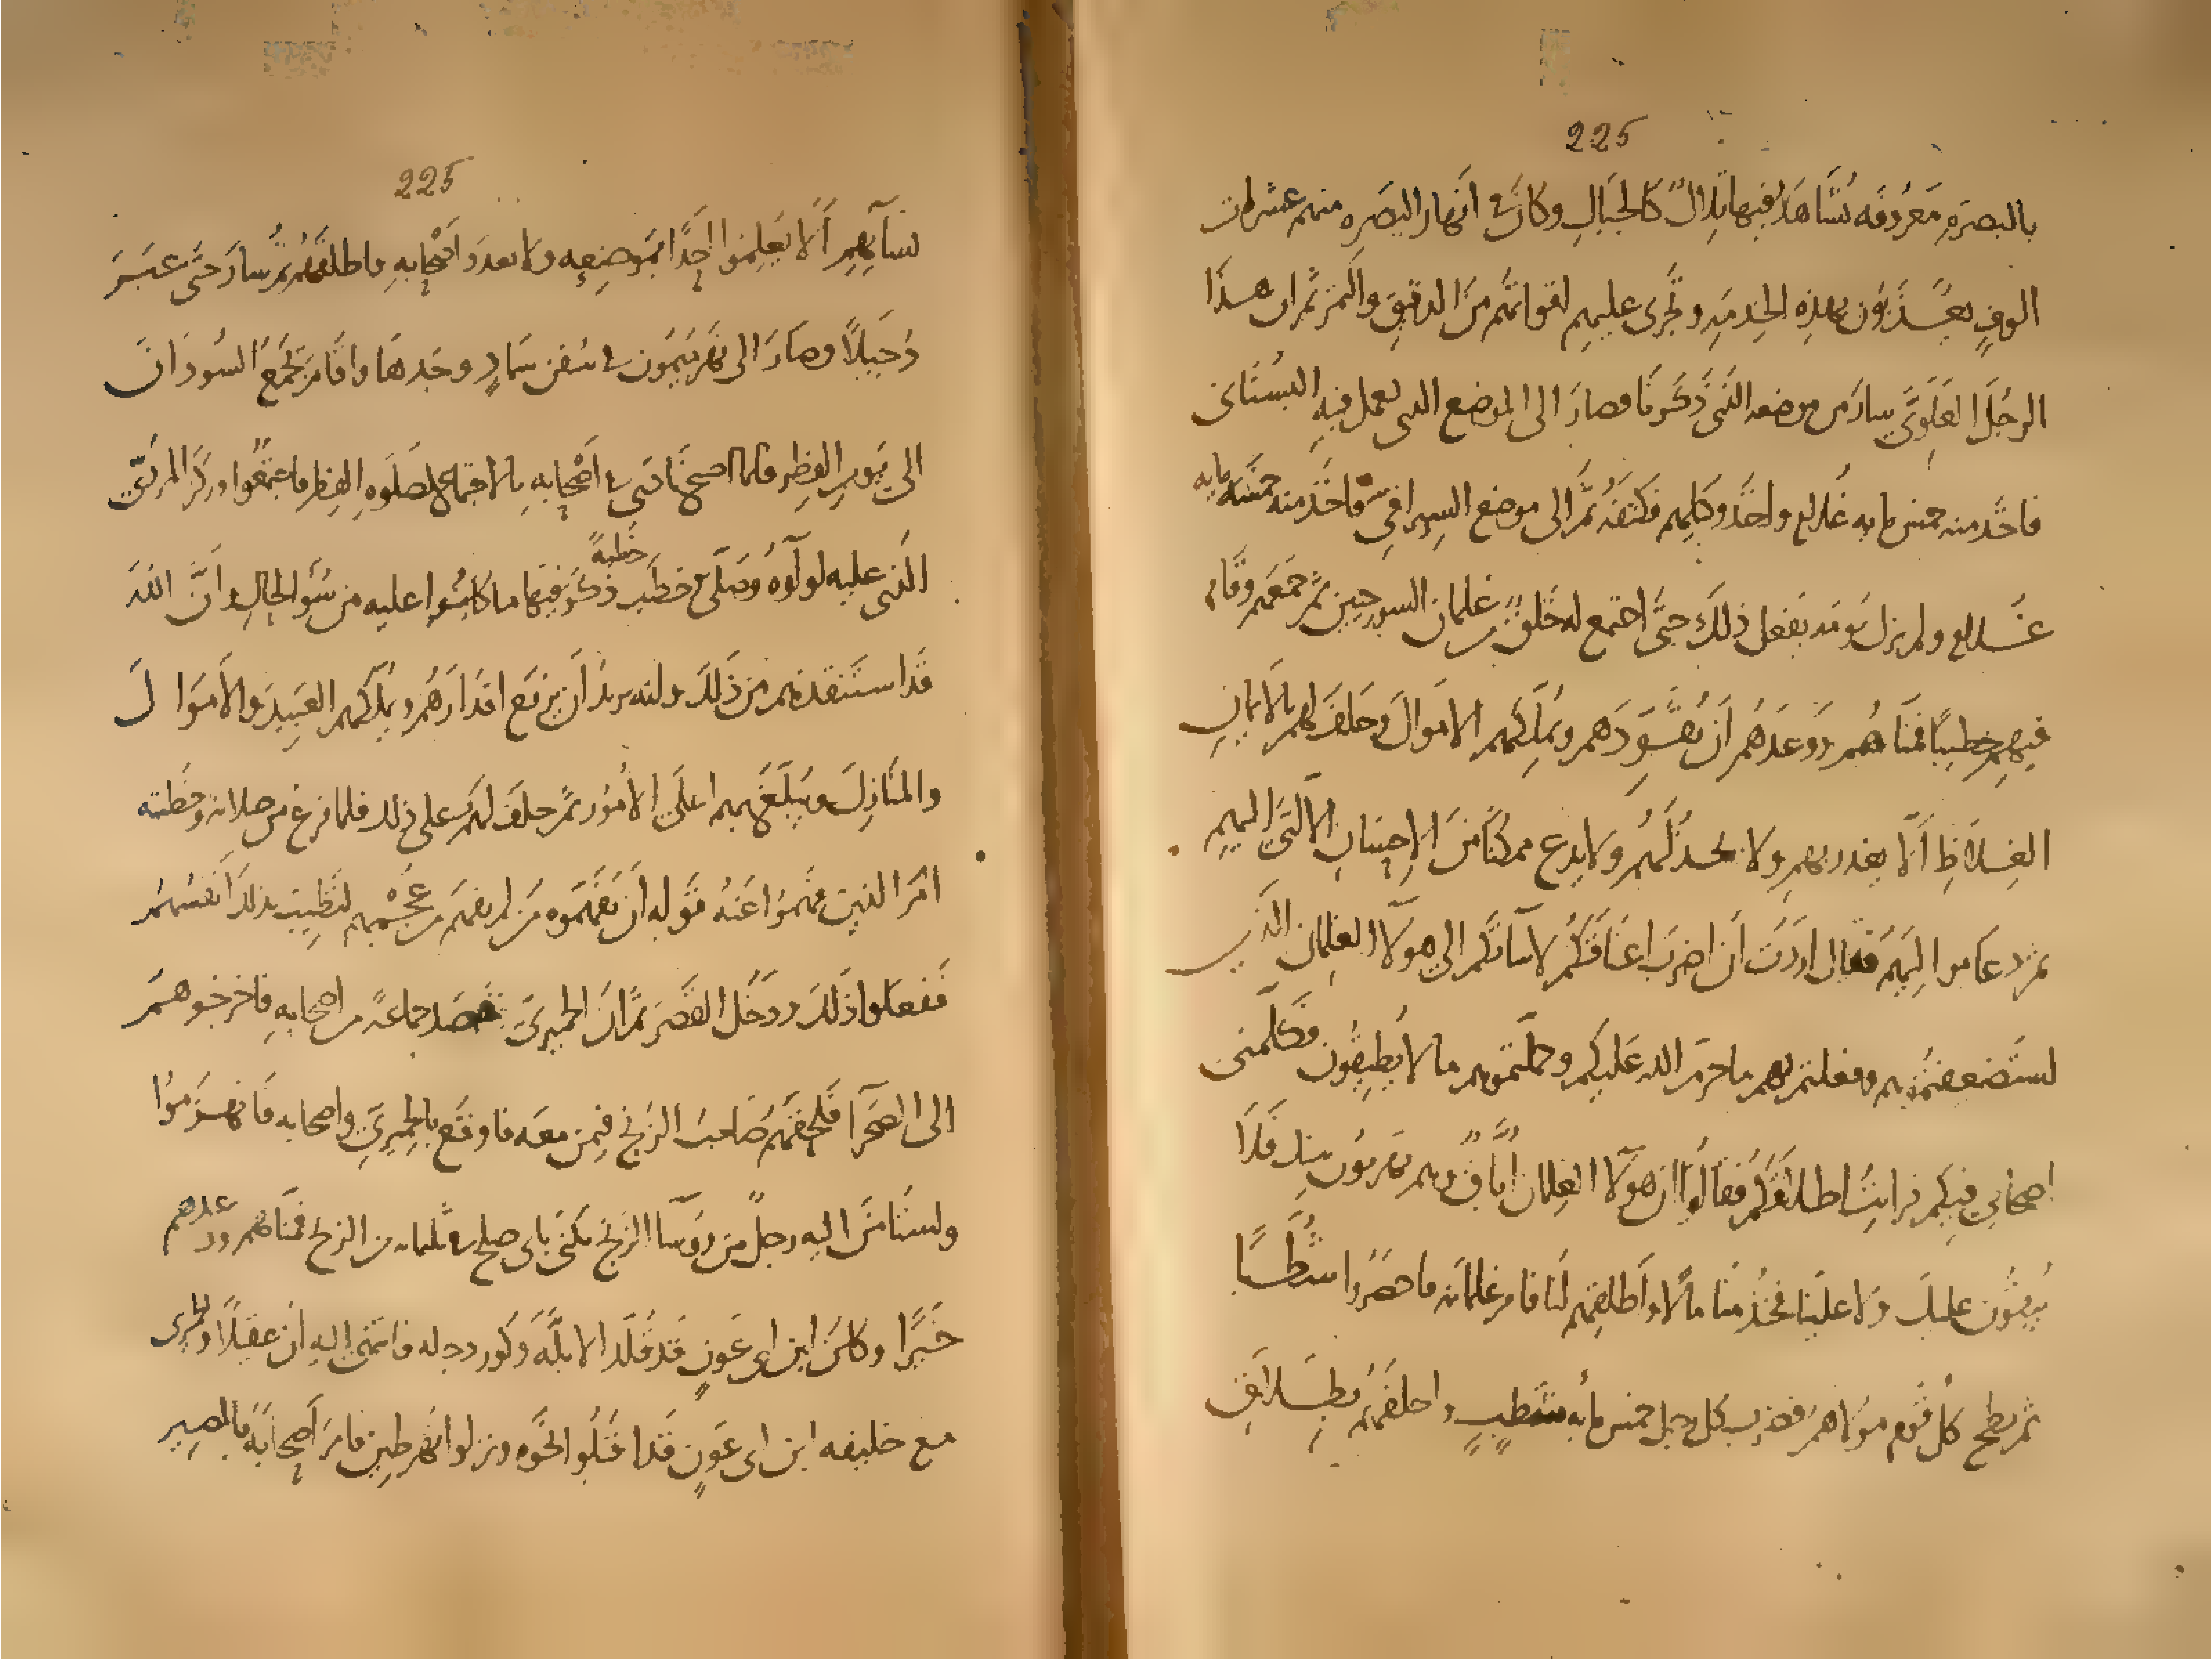 225
بالبصره معروفه نشاهد فيها تلال كالجبال وكان في انهار البصره منهم عشرات
الوف يعذبون بهذه الخدمه وتجرى عليهم اقواتهم من الدقيق والتمر ثم ان هذا
الرجل العلوى سار من موضعه الذى ذكرنا وصار الى الموضع الذى يعمل فيه البستانى
فاخذ منه خمس مايه غلام واخذ وكيلهم فكتفه ثم الى موضع السيرافى فاخذ منه خمسمايه
غلام ولم يزل يومه يفعل ذلك حتى اجتمع له خلق من غلمان السورجيين ثم جمعهم وقام
فيهم خطيبا فمناهم ووعدهم ان يقودهم ويملكهم الاموال وحلف لهم بالايمان
الغلاظ الا يغدر بهم ولا يخذلهم ولا يدع ممكنا من الاحسان الا اتى اليهم
ثم دعا مواليهم فقال اردت ان اضرب اعناقكم لاساتكم الى هولا الغلمان الذين
استضعفتموهم وفعلتم بهم ما حرم الله عليكم وحملتموهم ما لا يطيقون فكلمنى
اصحابى فيكم فرايت اطلاقكم فقالوا ان هولا الغلمان اباق وهم يهربون منك فلا
يبقون عليك ولا علينا فخذ منا مالا واطلقهم لنا فامر غلمانه فاحضروا شطبا
ثم بطح كل قوم مولاهم فضرب كل رجل خمس مايه شطب واحلفهم بطلاق
225
نسآيهم الا يعلموا احدا بموضعه ولا بعدد اصحابه واطلقهم ثم سار حتى عبر
دجيلا وصار الى نهر ميمون في سفن سماد وجدها واقام يجمع السودان
الى يوم الفطر فلما اصبح نادى في اصحابه بالاجتماع لصلوه الفطر فاجتمعوا وركز المردى
الذى عليه لوآوه وصلى وخطب خطبة ذكر فيها ما كانوا عليه من سو الحال وان الله
قد استنقذهم من ذلك وانه يريد ان يرفع اقدارهم ويملكهم العبيد والاموال
والمنازل ويبلغ بهم اعلى الامور ثم حلف لهم على ذلك فلما فرغ من صلاته وخطبته
امر الذين فهموا عنه قوله ان يفهموه من لم يفهم من عجمهم لتطيب بذلك انفسهم
ففعلوا ذلك ودخل القصر ثم ان الحميرى قصد جماعة من اصحابه فاخرجوهم
الى الصحرا فلحقهم صاحب الزنج فيمن معه فاوقع بالحميرى واصحابه فانهزموا
واستامن اليه رجل من روسا الزنج يكنى بابى صلح في ثلثمايه من الزنج فمناهم ووعدهم
خيرا وكان ابن ابى عون قد قلد الابله وكور دجله فانتهى اليه ان عقيلا والابرى
مع خليفه ابن ابى عون قد اقبلوا نحوه ونزلوا نهر طين فامر اصحابه بالمصير